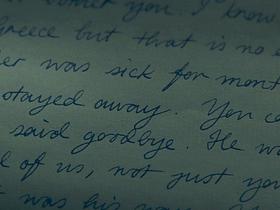 you. I know
Greece but that is no e
er was sick for mont
stayed away. You co
said goodbye. He wa
of us, not just you
was his way